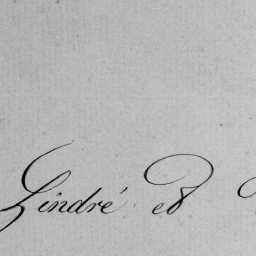 Lindré et